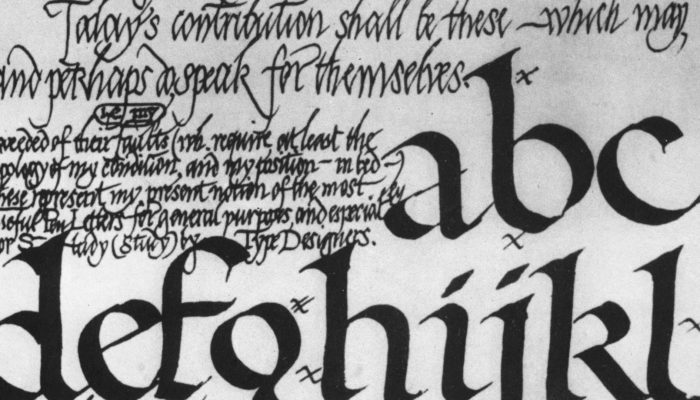 Today's contribution shall be these – which may,
and perhaps do speak for themselves.
weeded of their faults (wh. require at least the
apology of my condition, and my position – in bed –)
these represent my present notion of the most
useful Pen Letters for general purposes and especially
for S Study (Study) by Type Designers.
abc
defghijkl